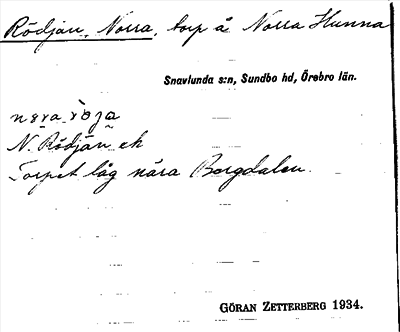 Rödjan, Norra, torp å Norra Hunna
Snavlunda s:n, Sundbo hd, Örebro län.
nɷra röja
N. Rödjan ek
Torpet låg nära Bergdalen.
GÖRAN ZETTERBERG 1934.